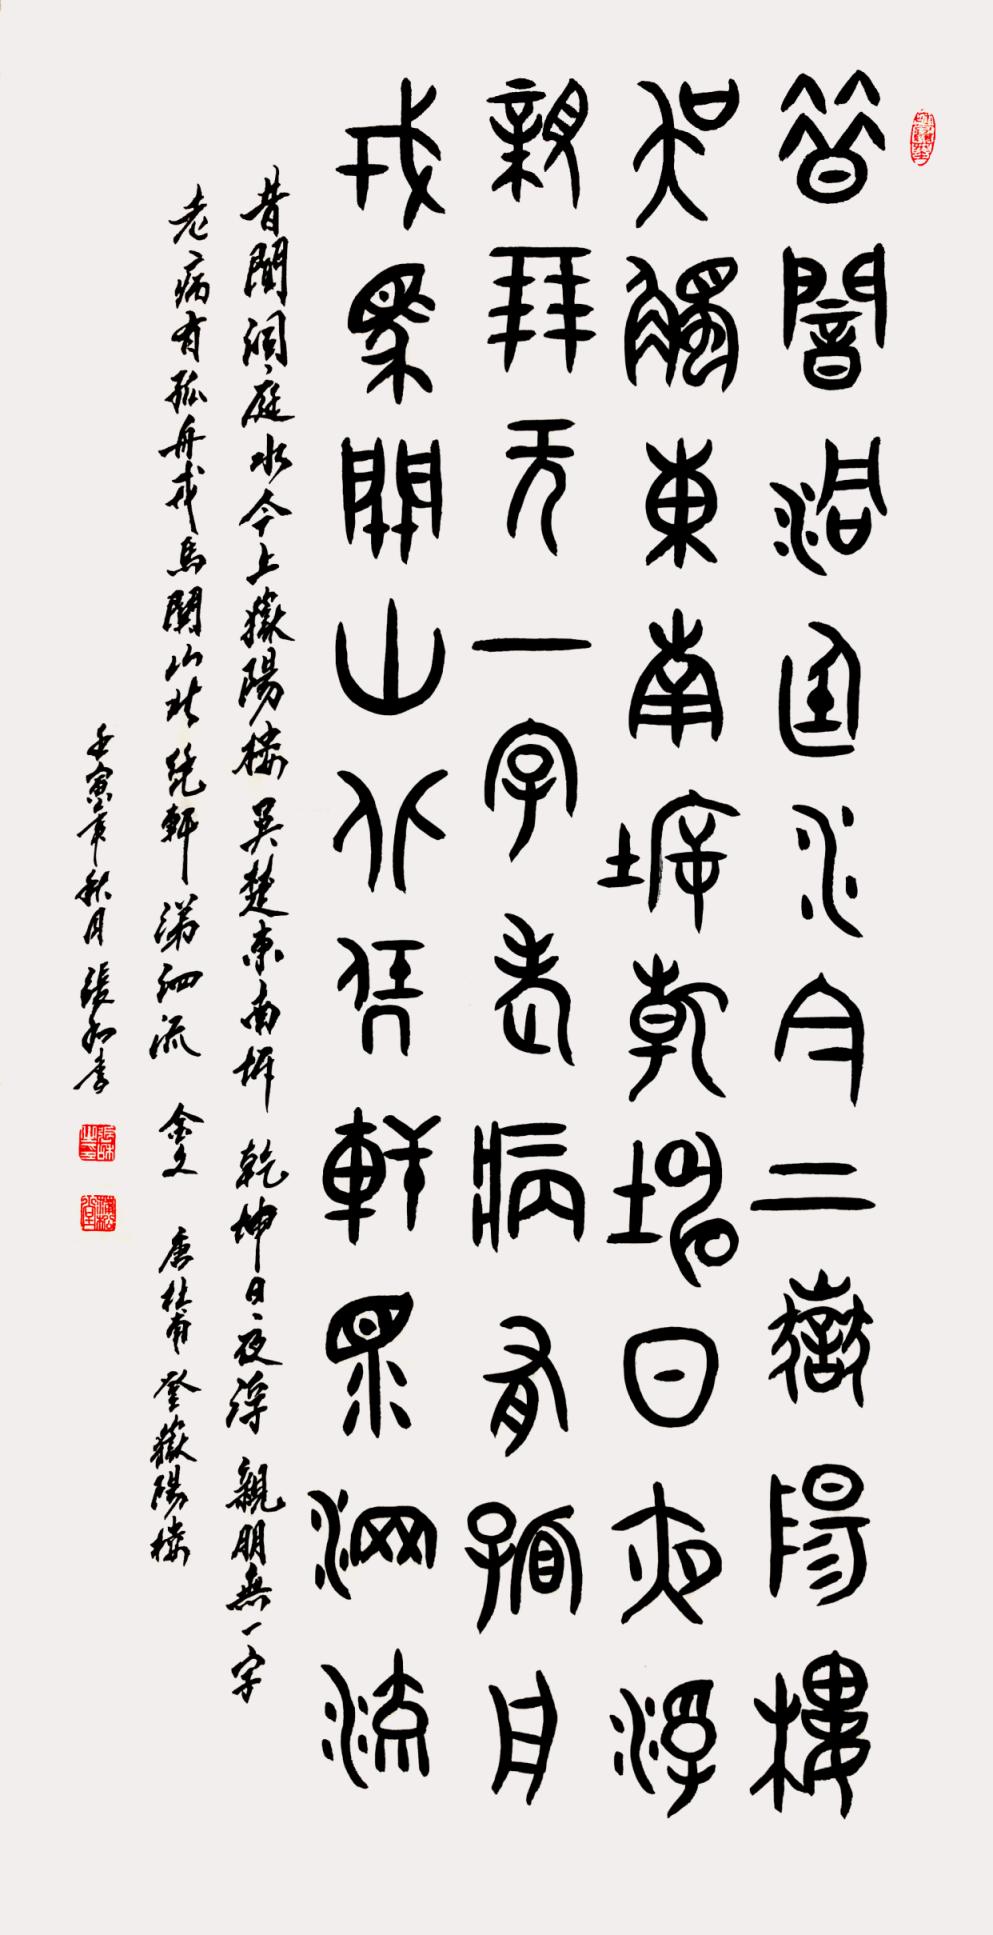 昔聞洞庭水今上嶽陽樓
吳楚東南坼乾坤日夜浮
親朋无一字老病有孤舟
戎馬關山北凭軒涕泗流
昔聞洞庭水今上嶽陽樓吳楚東南坼乾坤日夜浮親朋無一字
老病有孤舟戎馬關山北凭軒涕泗流 金文 唐杜甫登嶽陽樓
壬寅年秋月張和